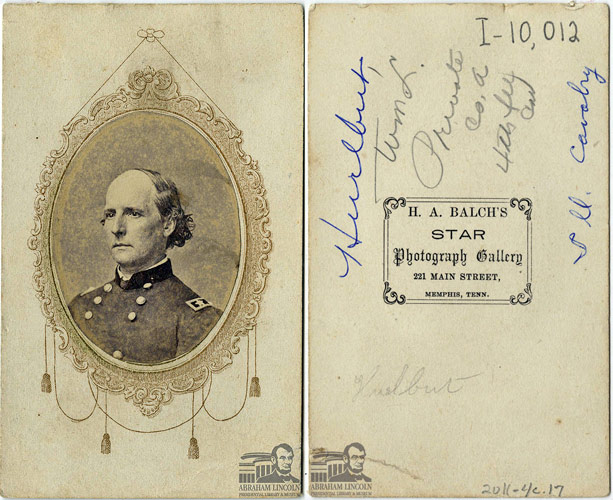 ABRAHAM LINCOLN
PRESIDENTIAL LIBRARY & MUSEUM
I-10,012
Hurlbut,
Wm L.
Private
Co. A
4th Ill
Cav
Ill. Cavalry
H. A. BALCH'S
STAR
Photograph Gallery
221 MAIN STREET,
MEMPHIS, TENN.
Hurlbut
ABRAHAM LINCOLN
PRESIDENTIAL LIBRARY & MUSEUM
2011-4c.17